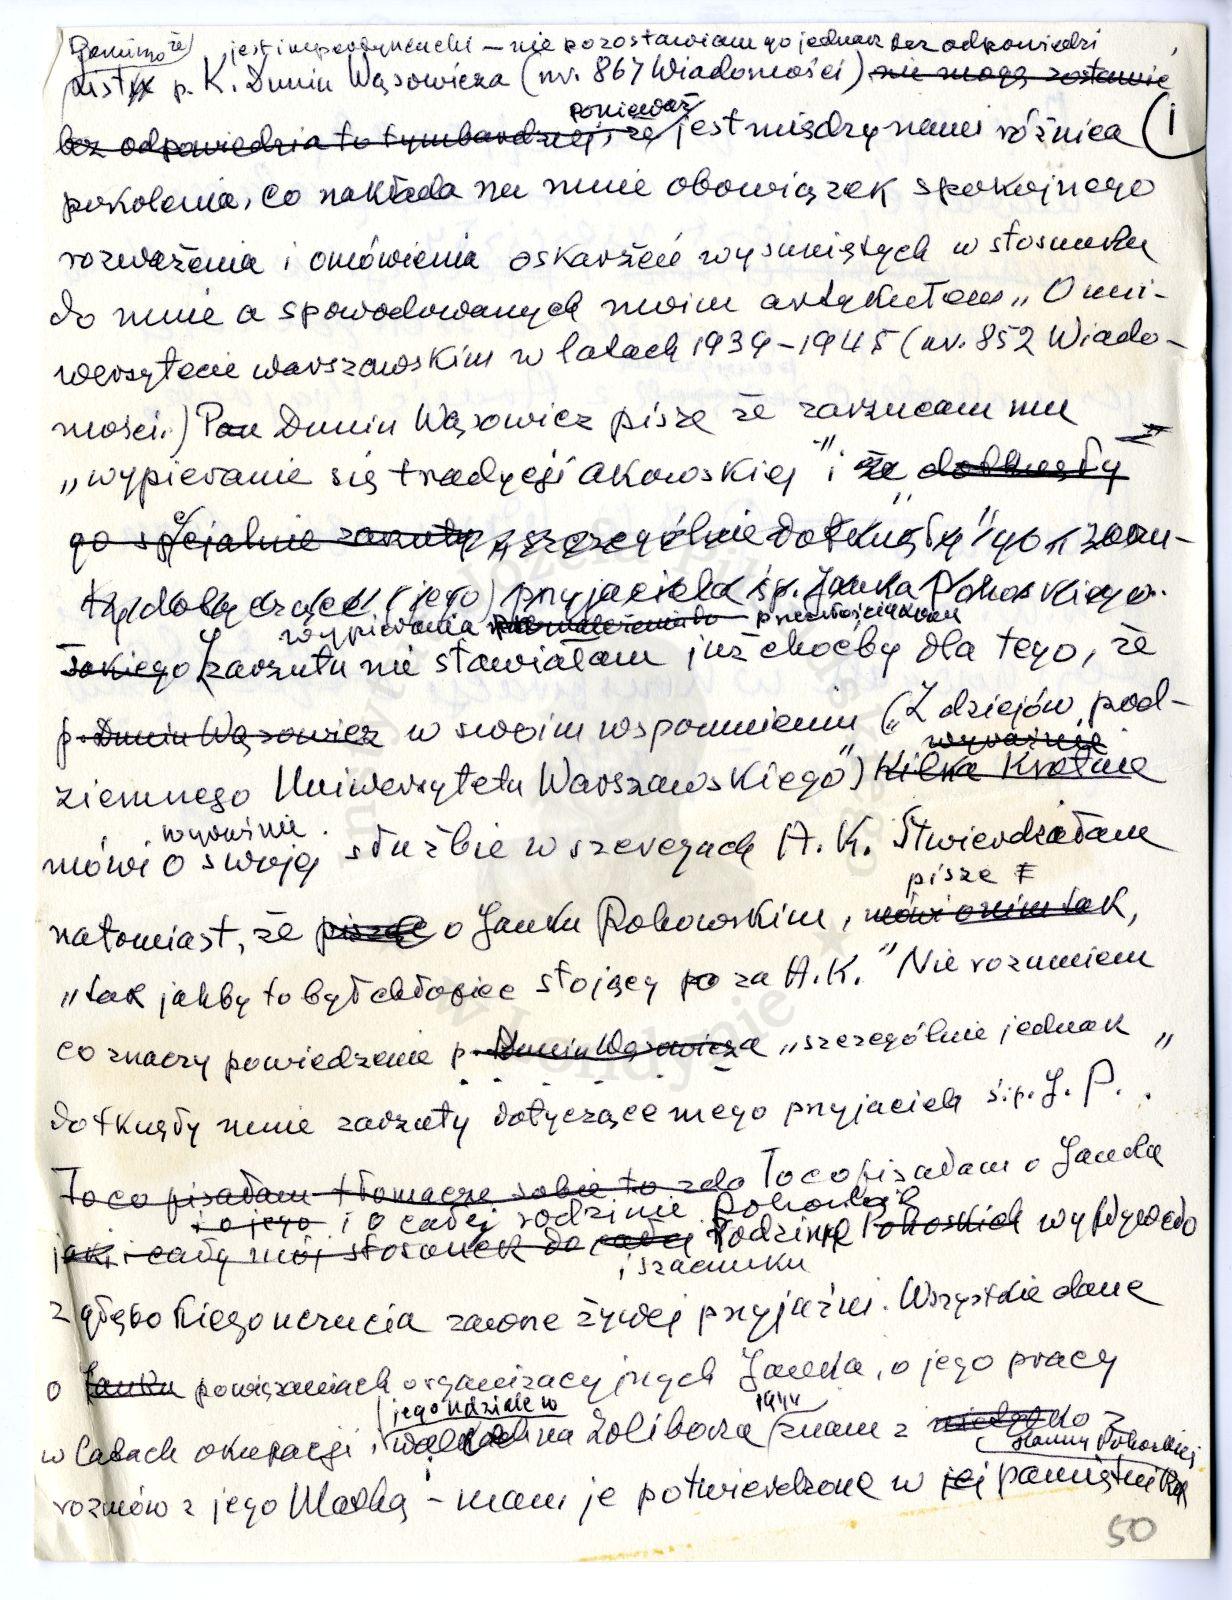 Pomimo że jest impertynencki — nie pozostawiam go jednak bez odpowiedzi
List p. K. Dunin Wąsowicza (nr. 867 Wiadomości) nie mogę zostawić
bez odpowiedzi a to tymbardziej, że ponieważ jest między nami różnica (1
pokolenia, co nakłada na mnie obowiązek spokojnego
rozważenia i omówienia oskarżeń wysuniętych w stosunku
do mnie a spowodowanych moim artykułem „O uni-
wersytecie warszawskim w latach 1939–1945 (nr. 852 Wiado-
mości.) Pan Dunin Wąsowicz pisze że zarzucam mu
„wypieranie się tradycji akowskiej" i że dotknęły
go specjalnie zarzuty „szczególnie dotknęły" go „zarzu-
ty dotyczące (jego) przyjaciela śp. Janka Pohoskiego.
wypierania przeszłości akowskiej
Takiego zarzutu nie stawiałam już choćby dla tego, że
p. Dunin Wąsowicz w swoim wspomnieniu („Z dziejów pod-
wyraźnie
ziemnego Uniwersytetu Warszawskiego") kilka krotnie
wyraźnie
mówi o swojej służbie w szeregach A.K. Stwierdziałam
pisze
natomiast, że pisząc o Janku Pohowskim, mówi o nim tak,
„tak jakby to był chłopiec stojący po za A.K." Nie rozumiem
co znaczy powiedzenie p. Dunin Wąsowicza „szczególnie jednak
dotknęły mnie zarzuty dotyczące mego przyjaciela ś.p. J. P. "
To co pisałam tłomaczę sobie to To co pisałam o Janku
i o jego i o całej rodzinie Pohoskich
jak i cały mój stosunek do całej rodziny Pohoskich wypływało
i szacunku
z głębokiego uczucia zawsze żywej przyjaźni. Wszystkie dane
o Janku powiązaniach organizacyjnych Janka, o jego pracy
jego udziale w 1944
w latach okupacji, walkach na Żoliborzu znam z
Hanny Pohoskiej
rozmów z jego Matką — mam je potwierdzone w jej pamiętniku
50